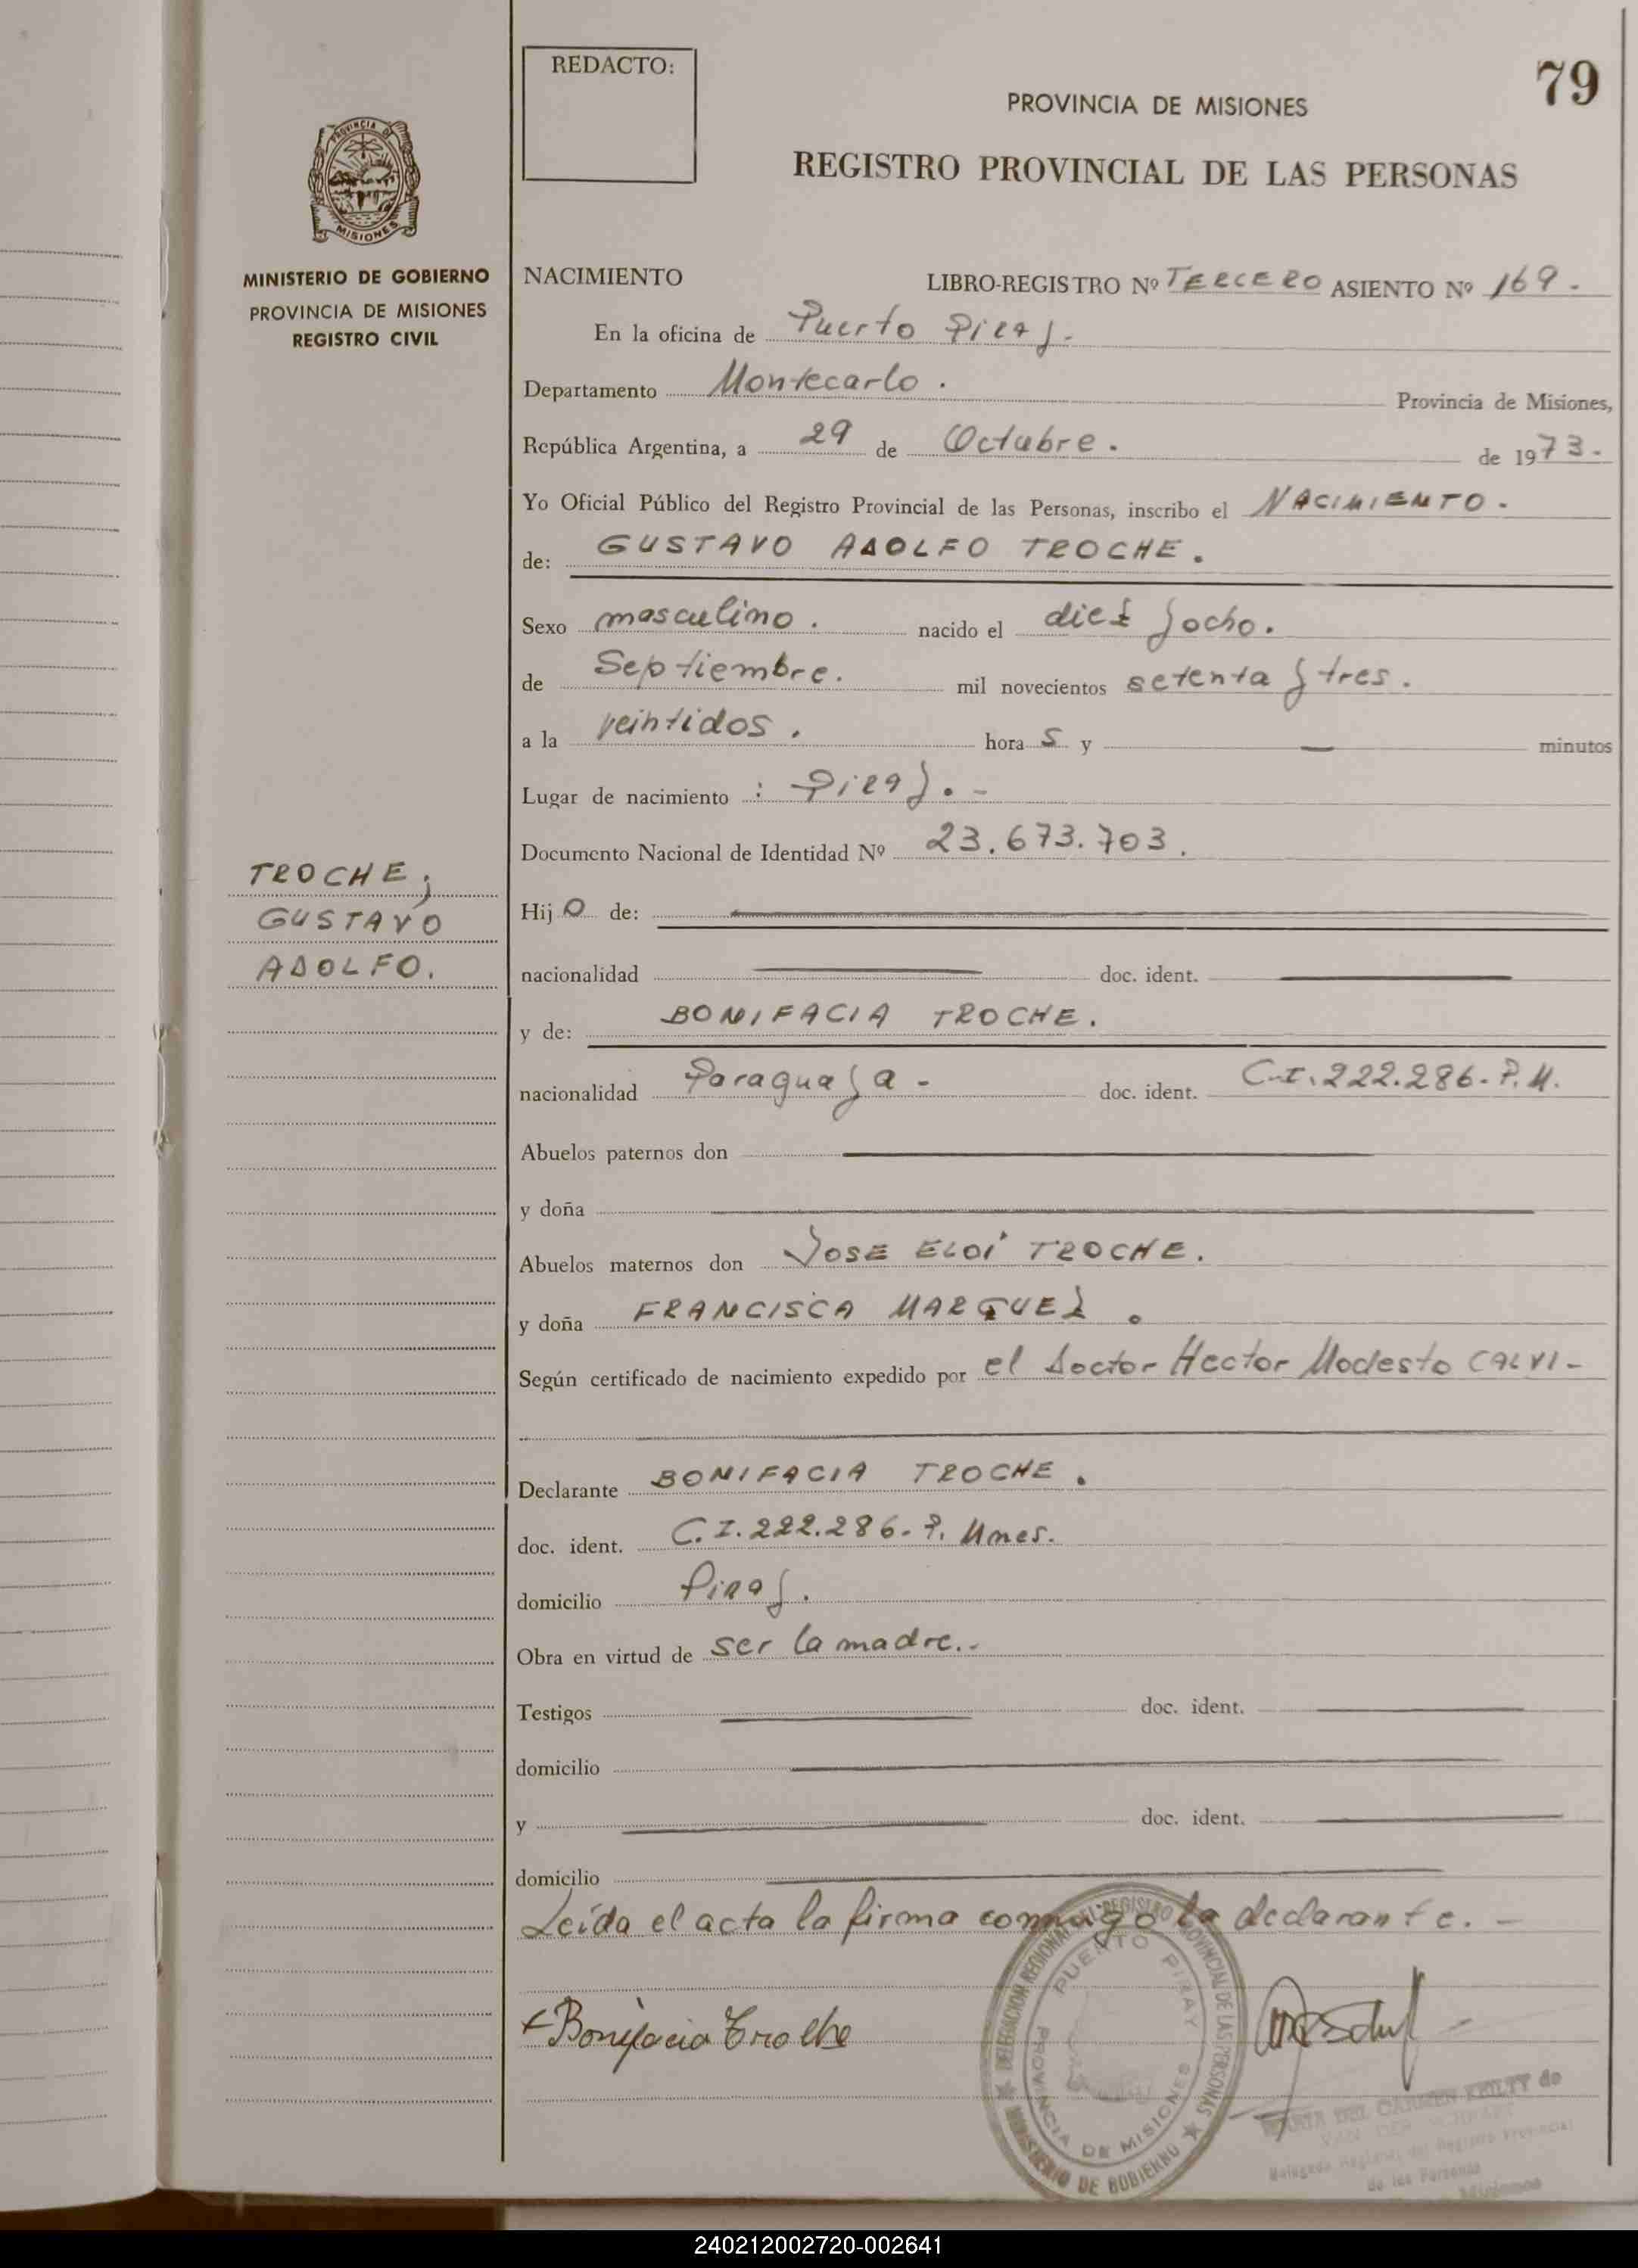 REDACTO:
79
PROVINCIA DE MISIONES
REGISTRO PROVINCIAL DE LAS PERSONAS
PROVINCIA DE
MISIONES
MINISTERIO DE GOBIERNO
PROVINCIA DE MISIONES
REGISTRO CIVIL
NACIMIENTO LIBRO-REGISTRO Nº TERCERO ASIENTO Nº 169.
En la oficina de Puerto Piray.
Departamento Montecarlo. Provincia de Misiones,
República Argentina, a 29 de Octubre. de 1973.
Yo Oficial Público del Registro Provincial de las Personas, inscribo el NACIMIENTO.
de: GUSTAVO ADOLFO TROCHE.
Sexo masculino. nacido el diez y ocho.
de Septiembre. mil novecientos setenta y tres.
a la veintidos. hora s y — minutos
Lugar de nacimiento : Piray. -
Documento Nacional de Identidad Nº 23.673.703.
TROCHE,
GUSTAVO
ADOLFO.
Hijo de:
nacionalidad doc. ident.
y de: BONIFACIA TROCHE.
nacionalidad Paraguaya - doc. ident. C.I. 222.286. P.M.
Abuelos paternos don
y doña
Abuelos maternos don JOSE ELOI TROCHE.
y doña FRANCISCA MARQUEZ.
Según certificado de nacimiento expedido por el Doctor Hector Modesto CALVI -
Declarante BONIFACIA TROCHE.
doc. ident. C.I. 222.286. P. Mnes.
domicilio Piray.
Obra en virtud de ser la madre. -
Testigos doc. ident.
domicilio
y doc. ident.
domicilio
Leída el acta la firma conmigo la declarante. -
Bonifacia Troche
DELEGACION REGIONAL DEL REGISTRO PROVINCIAL DE LAS PERSONAS
MINISTERIO DE GOBIERNO
PUERTO PIRAY
PROVINCIA DE MISIONES
MARIA DEL CARMEN KEILTY de
Delegada Regional del Registro Provincial
de las Personas
Misiones
240212002720-002641